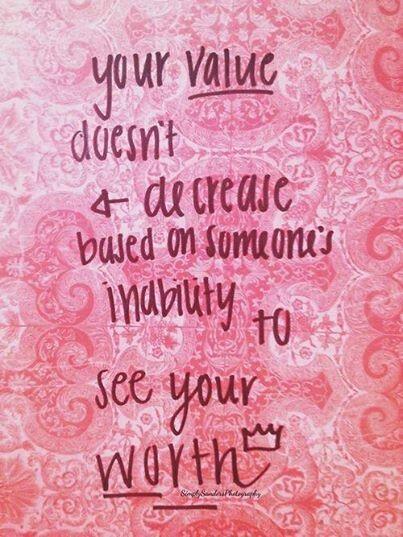 your value
doesn't
decrease
based on someone's
inability
to
see your
worth
SimplySandersPhotography